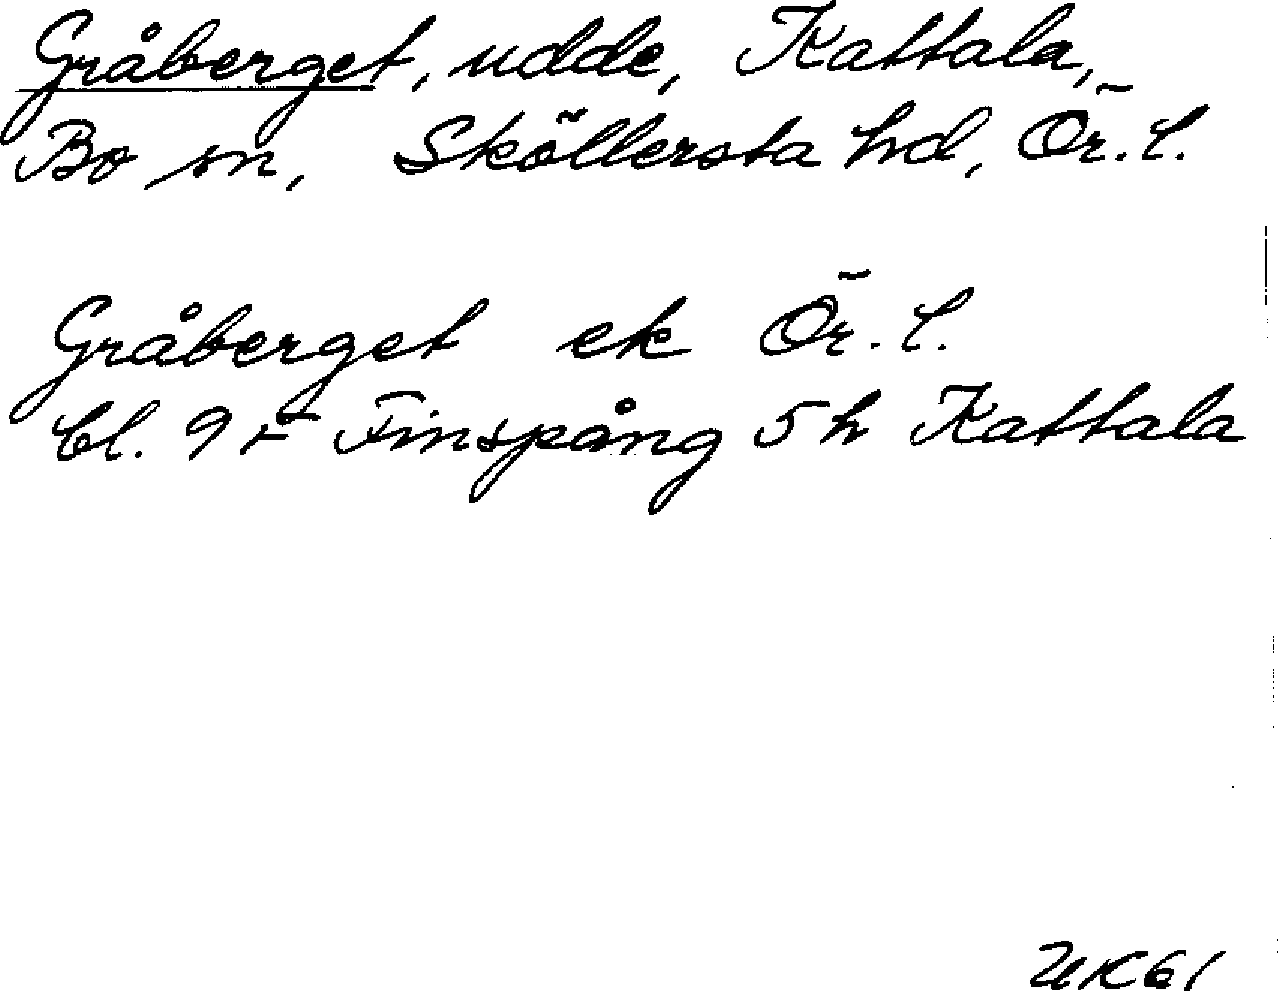 Gråberget, udde, Kattala,
Bo sn, Sköllersta hd, Ör. l.
Gråberget ek Ör. l.
bl. 9 F Finspång 5 h Kattala
UK61